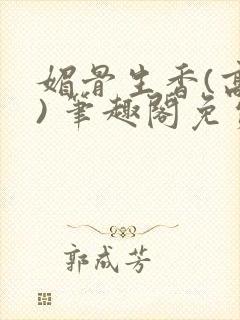 媚骨生香(高
) 笔趣阁免
郭成芳